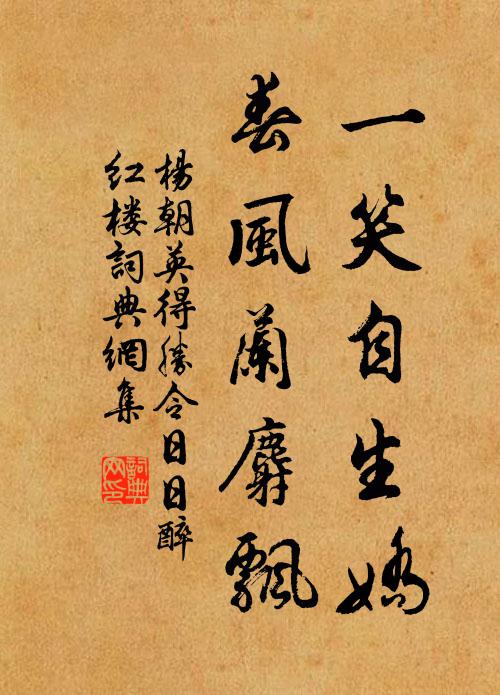 一笑自生嬌
春風蘭麝飄
楊朝英得勝令日日醉
红楼詞典網集
詞典